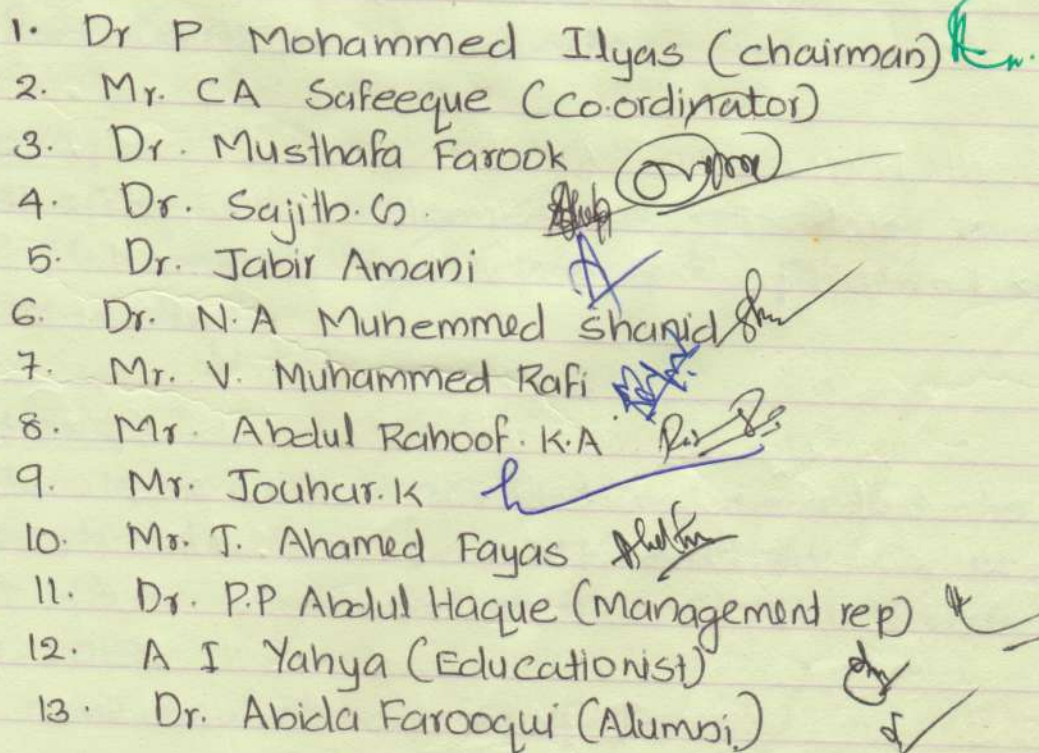 1. Dr P Mohammed Ilyas (chairman)
2. Mr. CA Safeeque (Co.ordinator)
3. Dr. Musthafa Farook
4. Dr. Sajith. G.
5. Dr. Jabir Amani
6. Dr. N.A Muhemmed shahid
7. Mr. V. Muhammed Rafi
8. Mr. Abdul Rahoof. K.A
9. Mr. Jouhar. K
10. Mr. T. Ahamed Fayas
11. Dr. P.P Abdul Haque (Management rep)
12. A I Yahya (Educationist)
13. Dr. Abida Farooqui (Alumni)